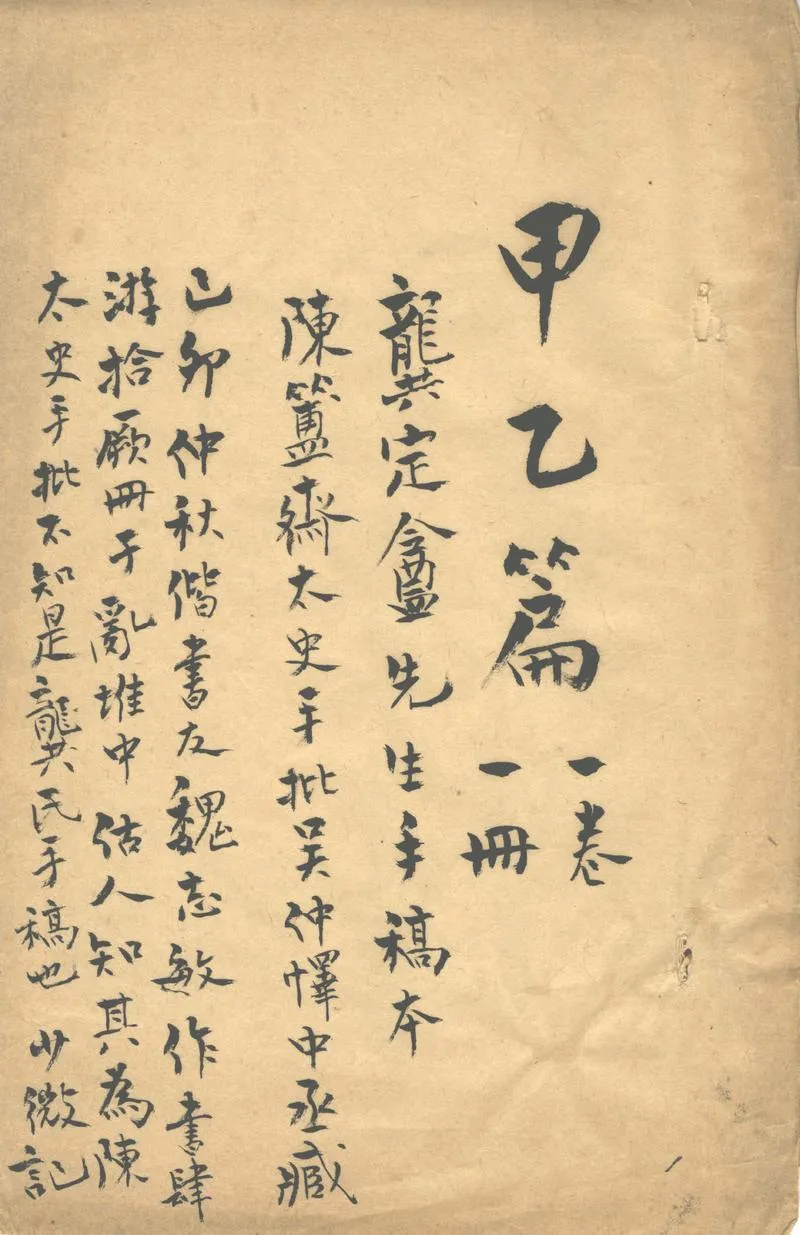 甲乙篇
一卷
一冊
龔定盦先生手稿本
陳簠齋太史手批吴仲懌中丞臧
己卯仲秋偕書友魏志敏作書肆
游拾厥冊于亂堆中估人知其為陳
太史手批不知是龔氏手稿也 少微記